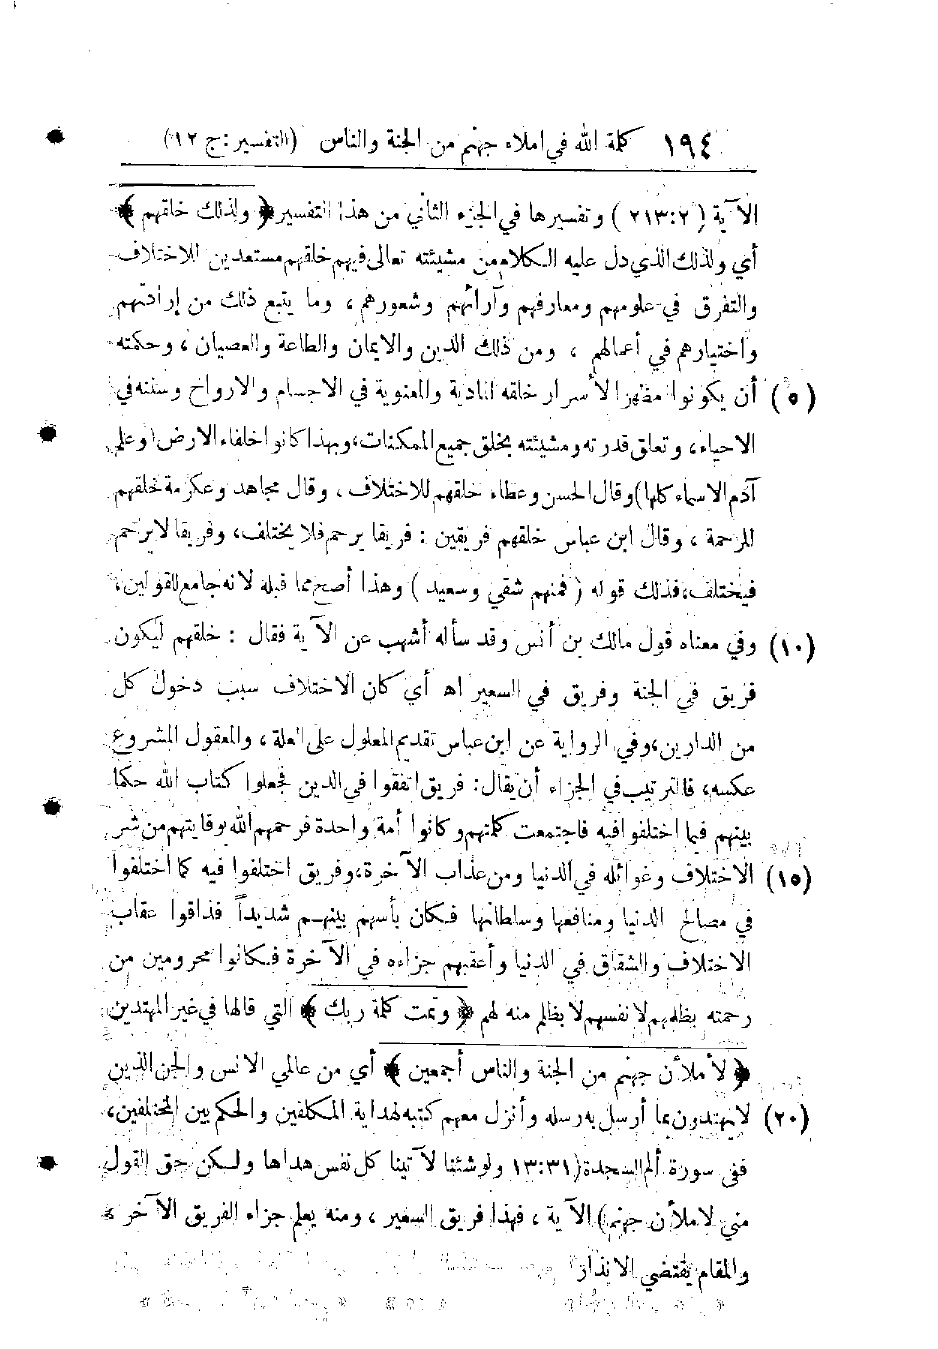 ١٩٤ كلمة الله في املاء جهنم من الجنة والناس (التفسير : ج ١٢)
الآية (٢١٣:٢) وتفسيرها في الجزء الثاني من هذا التفسير ﴿ ولذلك خلقهم ﴾
أي ولذلك الذي دل عليه الكلام من مشيئته تعالى فيهم خلقهم مستعدين للاختلاف
والتفرق في علومهم ومعارفهم وآرائهم وشعورهم ، وما يتبع ذلك من إرادتهم
واختيارهم في أعمالهم ، ومن ذلك الدين والايمان والطاعة والعصيان ، وحكمته
(٥) أن يكونوا مظهرا لأسرار خلقه المادية والمعنوية في الاجسام والارواح وسننه في
الاحياء، وتعلق قدرته ومشيئته بخلق جميع الممكنات، وبهذا كانوا خلفاء الارض (وعلم
آدم الاسماء كلها) وقال الحسن وعطاء خلقهم للاختلاف ، وقال مجاهد وعكرمة خلقهم
للرحمة ، وقال ابن عباس خلقهم فريقين : فريقا يرحم فلا يختلف، وفريقا لا يرحم
فيختلف، فذلك قوله ( فمنهم شقي وسعيد ) وهذا أصح مما قبله لانه جامع للقولين،
(١٠) وفي معناه قول مالك بن أنس وقد سأله أشهب عن الآية فقال : خلقهم ليكون
فريق في الجنة وفريق في السعير اه أي كان الاختلاف سبب دخول كل
من الدارين، وفي الرواية عن ابن عباس تقديم المعلول على العلة ، والمعقول المشروع
عكسه، فالترتيب في الجزاء أن يقال : فريق اتفقوا في الدين فجعلوا كتاب الله حكما
بينهم فيما اختلفوا فيه فاجتمعت كلمتهم وكانوا أمة واحدة فرحمهم الله بوقايتهم من شر
(١٥) الاختلاف وغوائله في الدنيا ومن عذاب الآخرة، وفريق اختلفوا فيه كما اختلفوا
في مصالح الدنيا ومنافعها وسلطانها فكان بأسهم بينهم شديداً فذاقوا عقاب
الاختلاف والشقاق في الدنيا وأعقبهم جزاءه في الآخرة فكانوا محرومين من
رحمته بظلمهم لانفسهم لا بظلم منه لهم ﴿ وتمت كلمة ربك ﴾ التي قالها في غير المهتدين
﴿ لأملأن جهنم من الجنة والناس أجمعين ﴾ أي من عالمي الانس والجن الذين
(٢٠) لا يهتدون بما أرسل به رسله وأنزل معهم كتبه لهداية المكلفين والحكم بين المختلفين،
ففي سورة ألم السجدة (١٣:٣١ ولو شئنا لآتينا كل نفس هداها ولكن حق القول
مني لاملأن جهنم) الآية ، فهذا فريق السعير ، ومنه يعلم جزاء الفريق الآخر
والمقام يقتضي الانذار